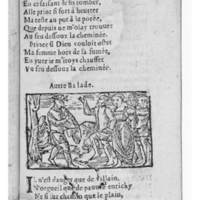 En ce faisant
Alle prins si fort a heurter
Ma teste au pot a la porée,
Que depuis ne m'oſay trouuer
Au feu deſſoux la cheminée.
Prince ſi Dieu vouloit oſter
Ma femme hors de ſa fumée,
En yuer ie m'iroys chauffer
Vn feu deſſoux la cheminée.
Autre Balade.
IL n'eſt danger que de villain,
N'orgueil que de pauure enrichy
Ne ſi ſeur chemin que le plain,